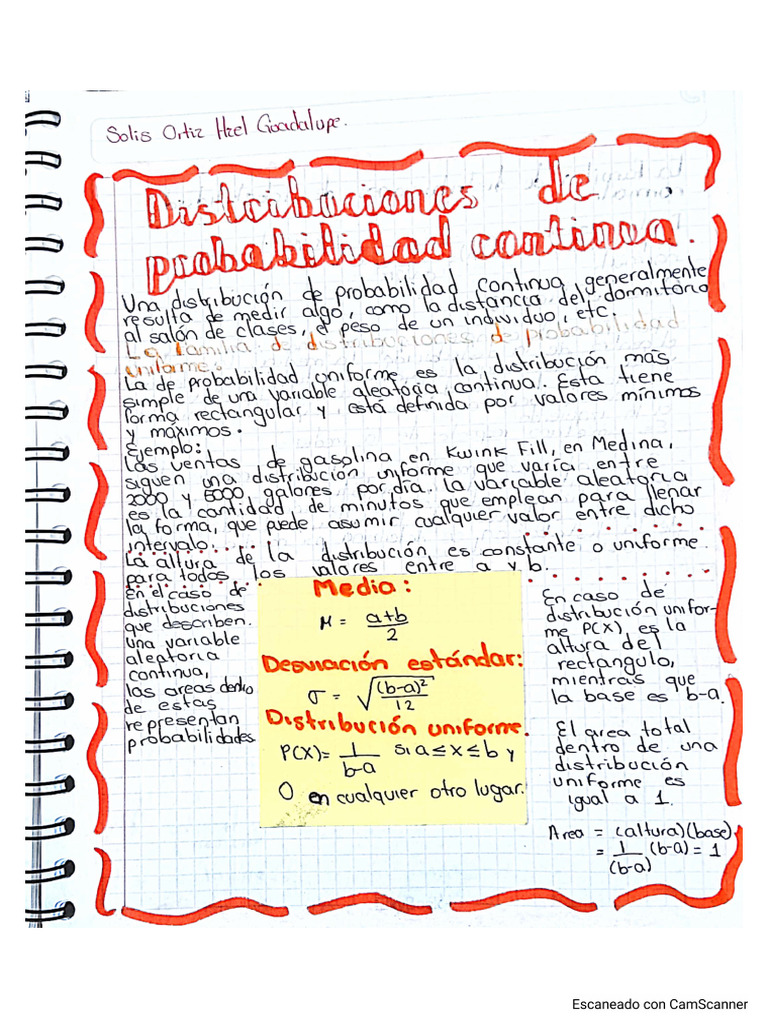 Solis Ortiz Itzel Guadalupe.
Distribuciones de
probabilidad continua.
Una distribución de probabilidad continua generalmente
resulta de medir algo, como la distancia del dormitorio
al salón de clases, el peso de un individuo, etc.
La familia de distribuciones de probabilidad
uniforme.
La de probabilidad uniforme es la distribución más
simple de una variable aleatoria continua. Esta tiene
forma rectangular y está definida por valores mínimos
y máximos.
Ejemplo:
Las ventas de gasolina en Kwink Fill, en Medina,
siguen una distribución uniforme que varía entre
2000 y 5000, galones por día. la variable aleatoria
es la cantidad de minutos que emplean para llenar
la forma, que puede asumir cualquier valor entre dicho
intervalo.
La altura de la distribución es constante o uniforme
para todos los valores entre a y b.
En el caso de
distribuciones
que describen
una variable
aleatoria
continua,
las areas dentro
de estas
representan
probabilidades
Media:
μ = a+b
2
Desviación estándar:
σ = √(b-a)²
12
Distribución uniforme.
P(X)= 1 si a ≤ x ≤ b y
b-a
0 en cualquier otro lugar.
En caso de
distribución unifor-
me P(X), es la
altura del
rectangulo,
mientras que
la base es b-a.
El area total
dentro de una
distribución
uniforme es
igual a 1.
Area = (altura)(base)
= 1 (b-a) = 1
(b-a)
Escaneado con CamScanner